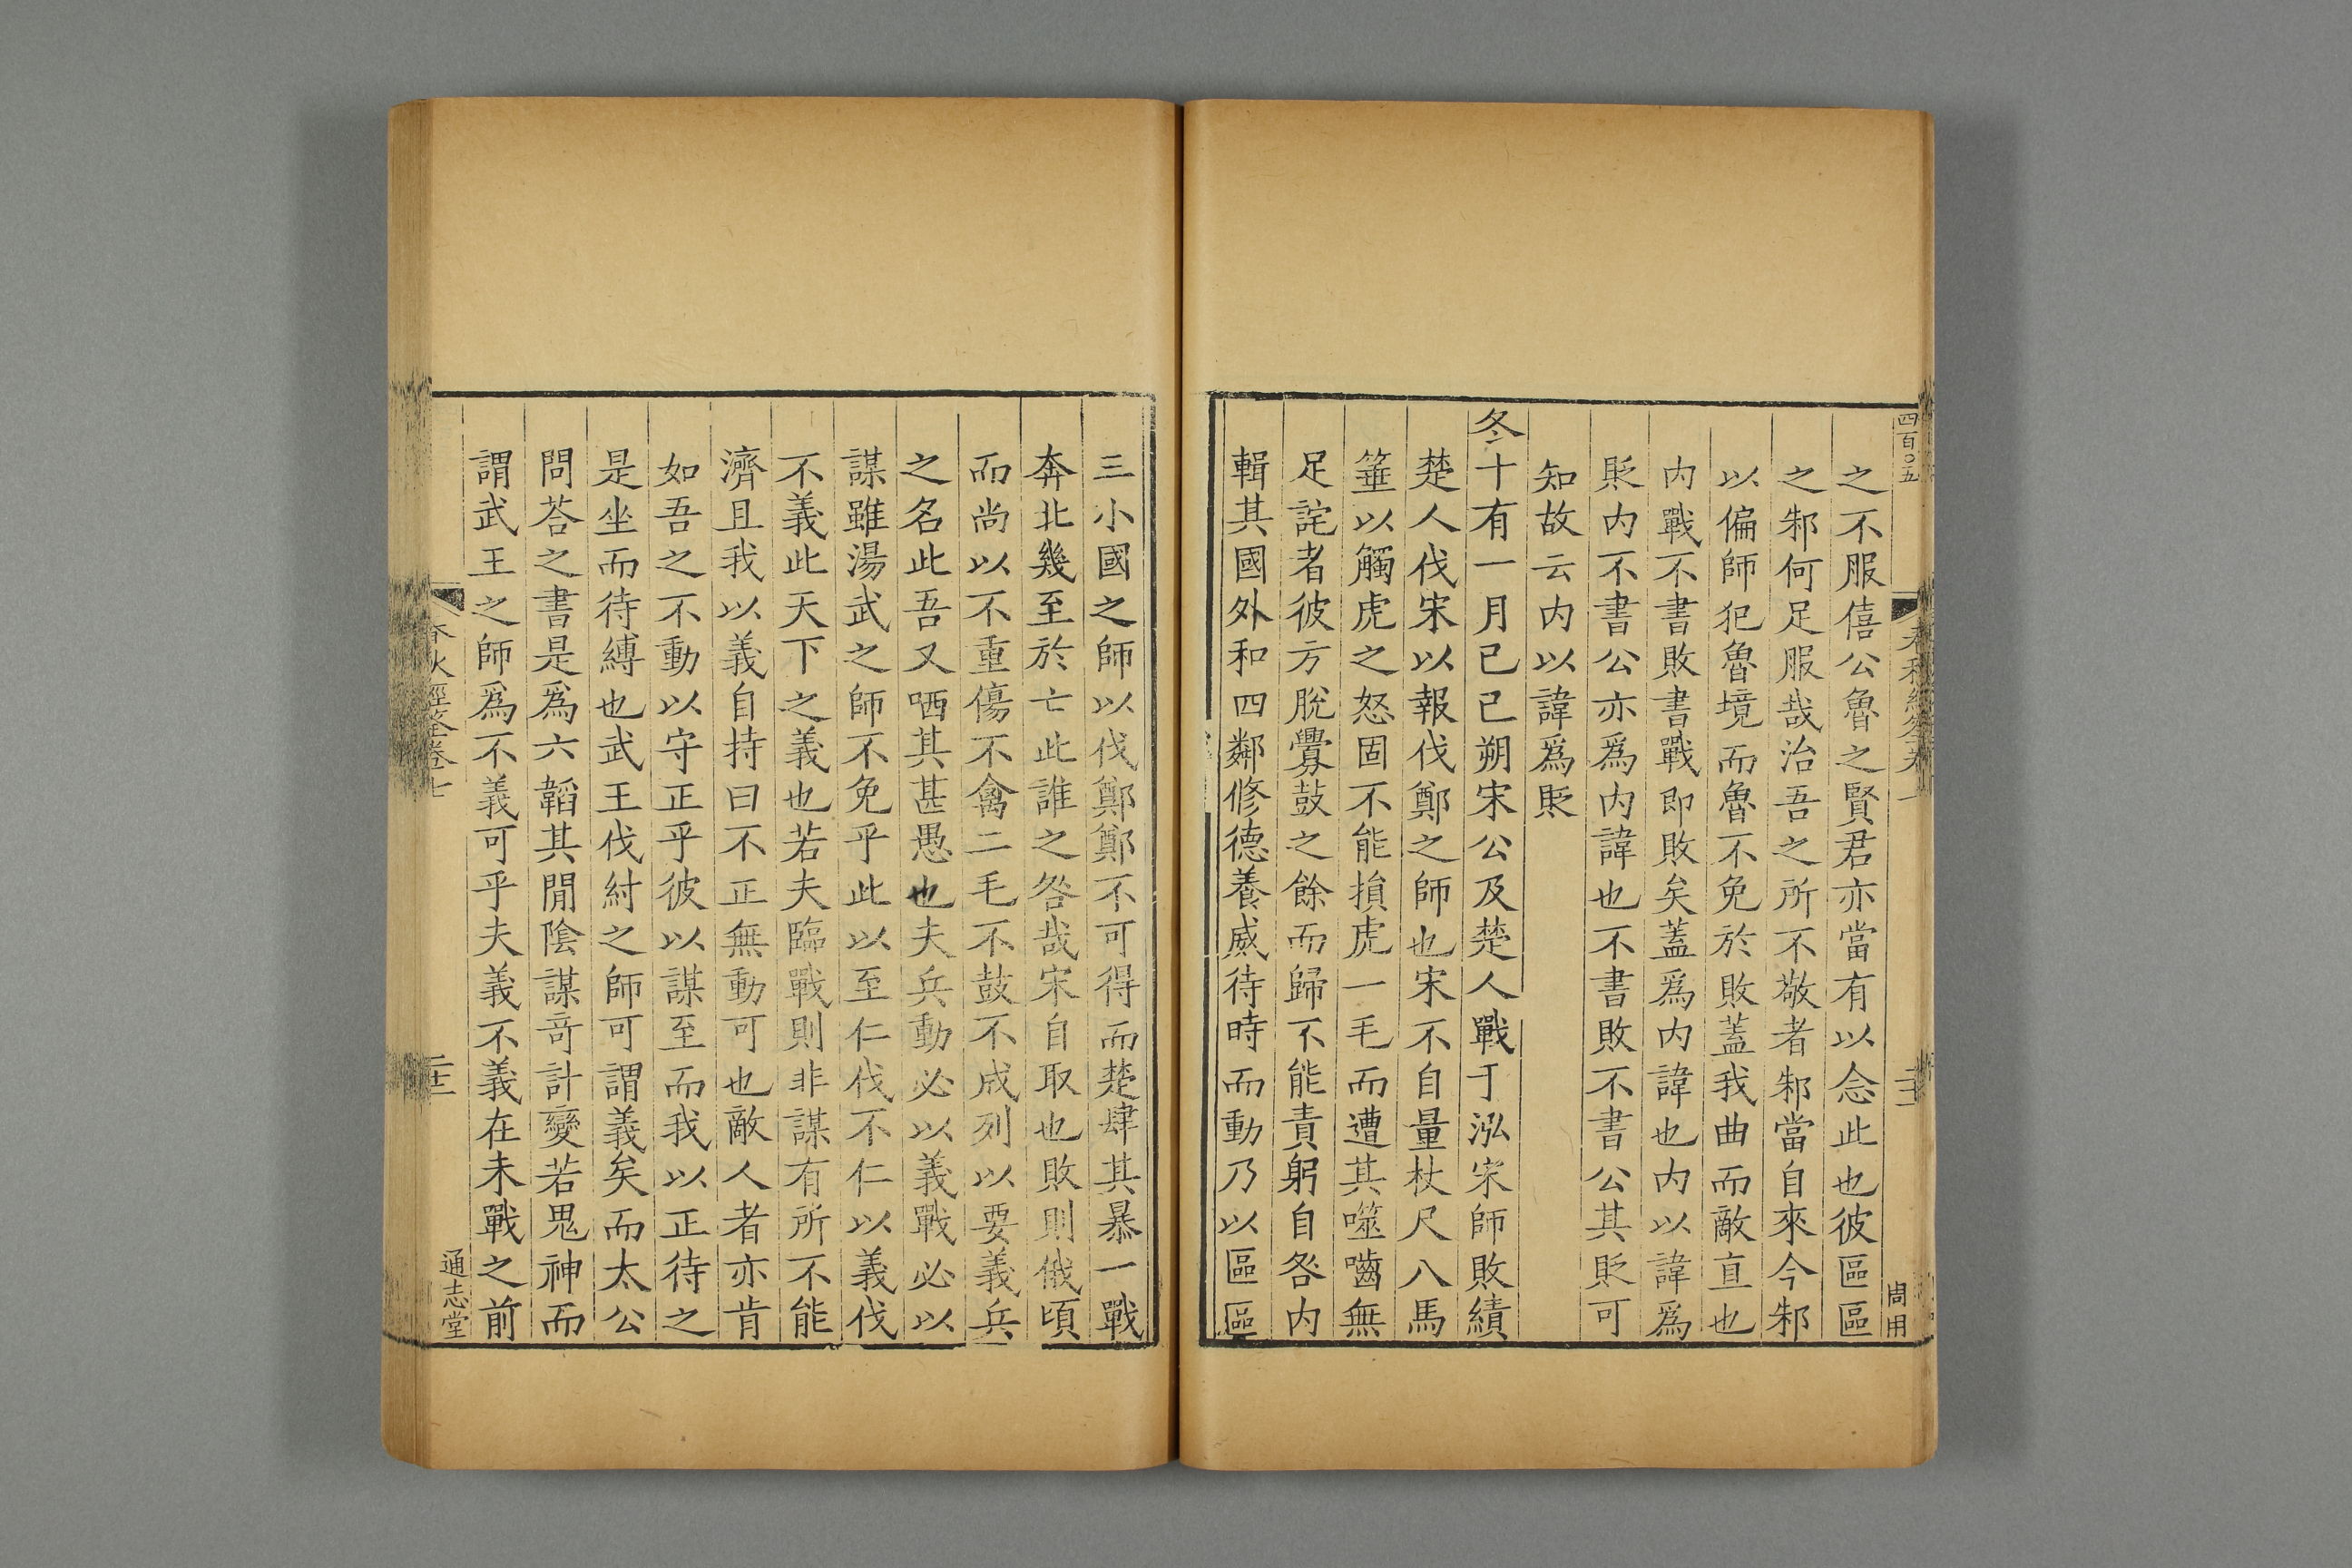 四百○五
周用
之不服僖公魯之賢君亦當有以念此也彼區區
之邾何足服哉治吾之所不敬者邾當自來今邾
以偏師犯魯境而魯不免於敗蓋我曲而敵直也
内戰不書敗書戰即敗矣蓋爲内諱也内以諱爲
貶内不書公亦爲内諱也不書敗不書公其貶可
知故云内以諱爲貶
冬十有一月已已朔宋公及楚人戰于泓宋師敗績
楚人伐宋以報伐鄭之師也宋不自量杖尺八馬
箠以觸虎之怒固不能損虎一毛而遭其噬嚙無
足詫者彼方脫釁鼓之餘而歸不能責躬自咎内
輯其國外和四鄰修德養威待時而動乃以區區
三小國之師以伐鄭鄭不可得而楚肆其暴一戰
奔北幾至於亡此誰之咎哉宋自取也敗則俄頃
而尚以不重傷不禽二毛不鼓不成列以要義兵
之名此吾又哂其甚愚也夫兵動必以義戰必以
謀雖湯武之師不免乎此以至仁伐不仁以義伐
不義此天下之義也若夫臨戰則非謀有所不能
濟且我以義自持曰不正無動可也敵人者亦肯
如吾之不動以守正乎彼以謀至而我以正待之
是坐而待縛也武王伐紂之師可謂義矣而太公
問荅之書是爲六韜其閒陰謀竒計變若鬼神而
謂武王之師爲不義可乎夫義不義在未戰之前
春秋經筌卷七
二十二
通志堂